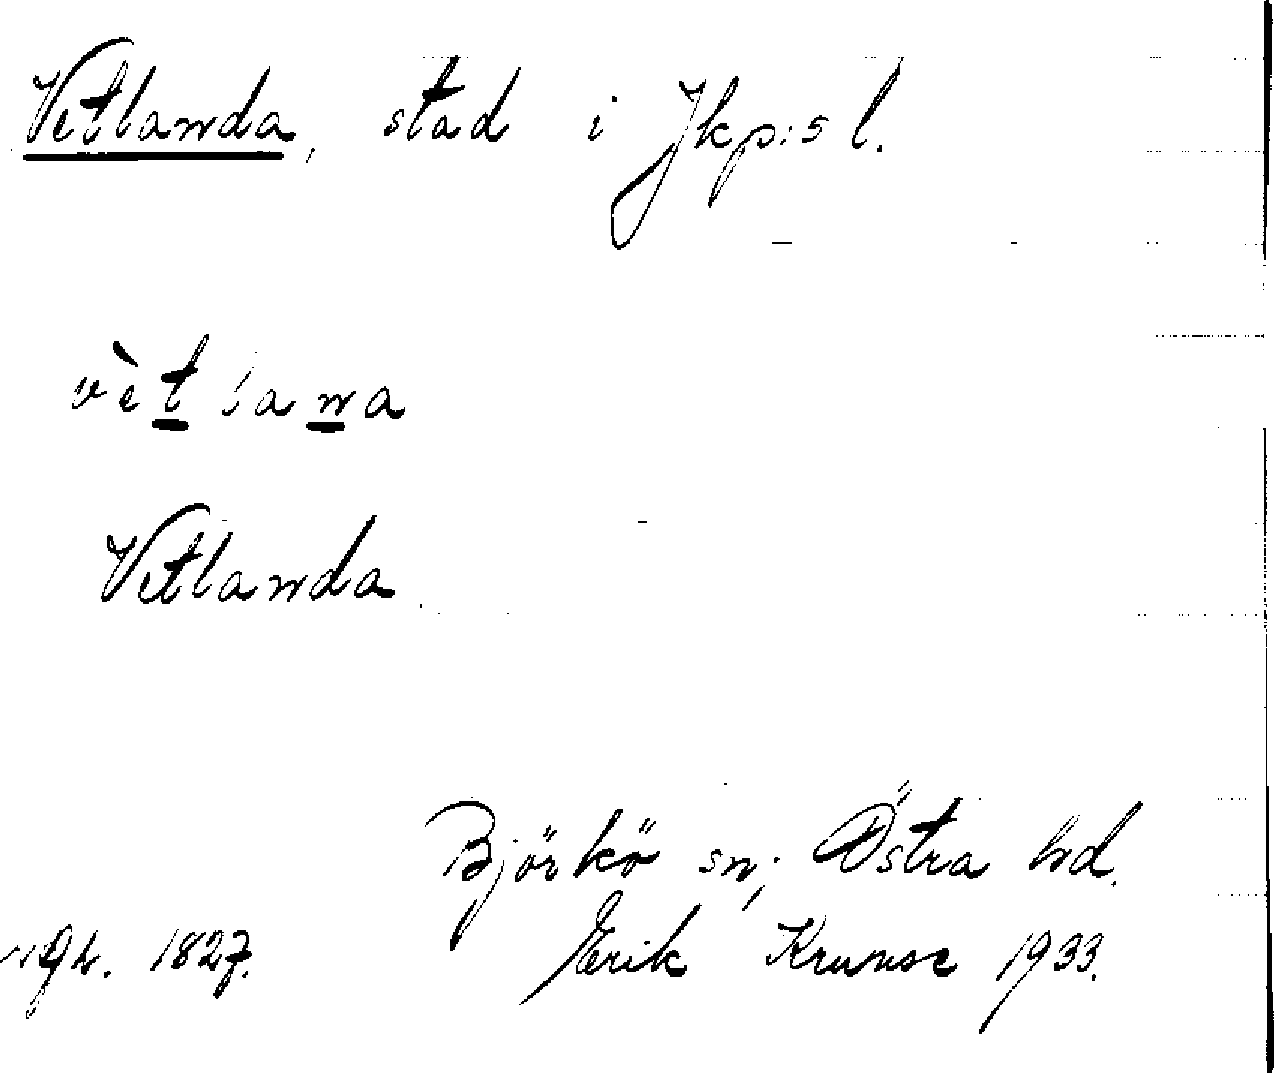 Vetlanda, stad i Jkp:s l.
vètlana
Vetlanda
Björkö sn; Östra hd.
1827. Erik Krunse 1933.